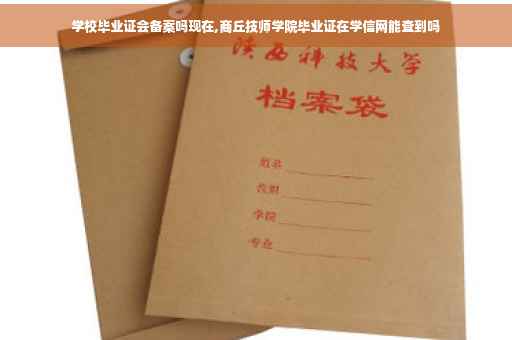 学校毕业证会备案吗现在,商丘技师学院毕业证在学信网能查到吗
陕西科技大学
档案袋
姓名
学院
专业